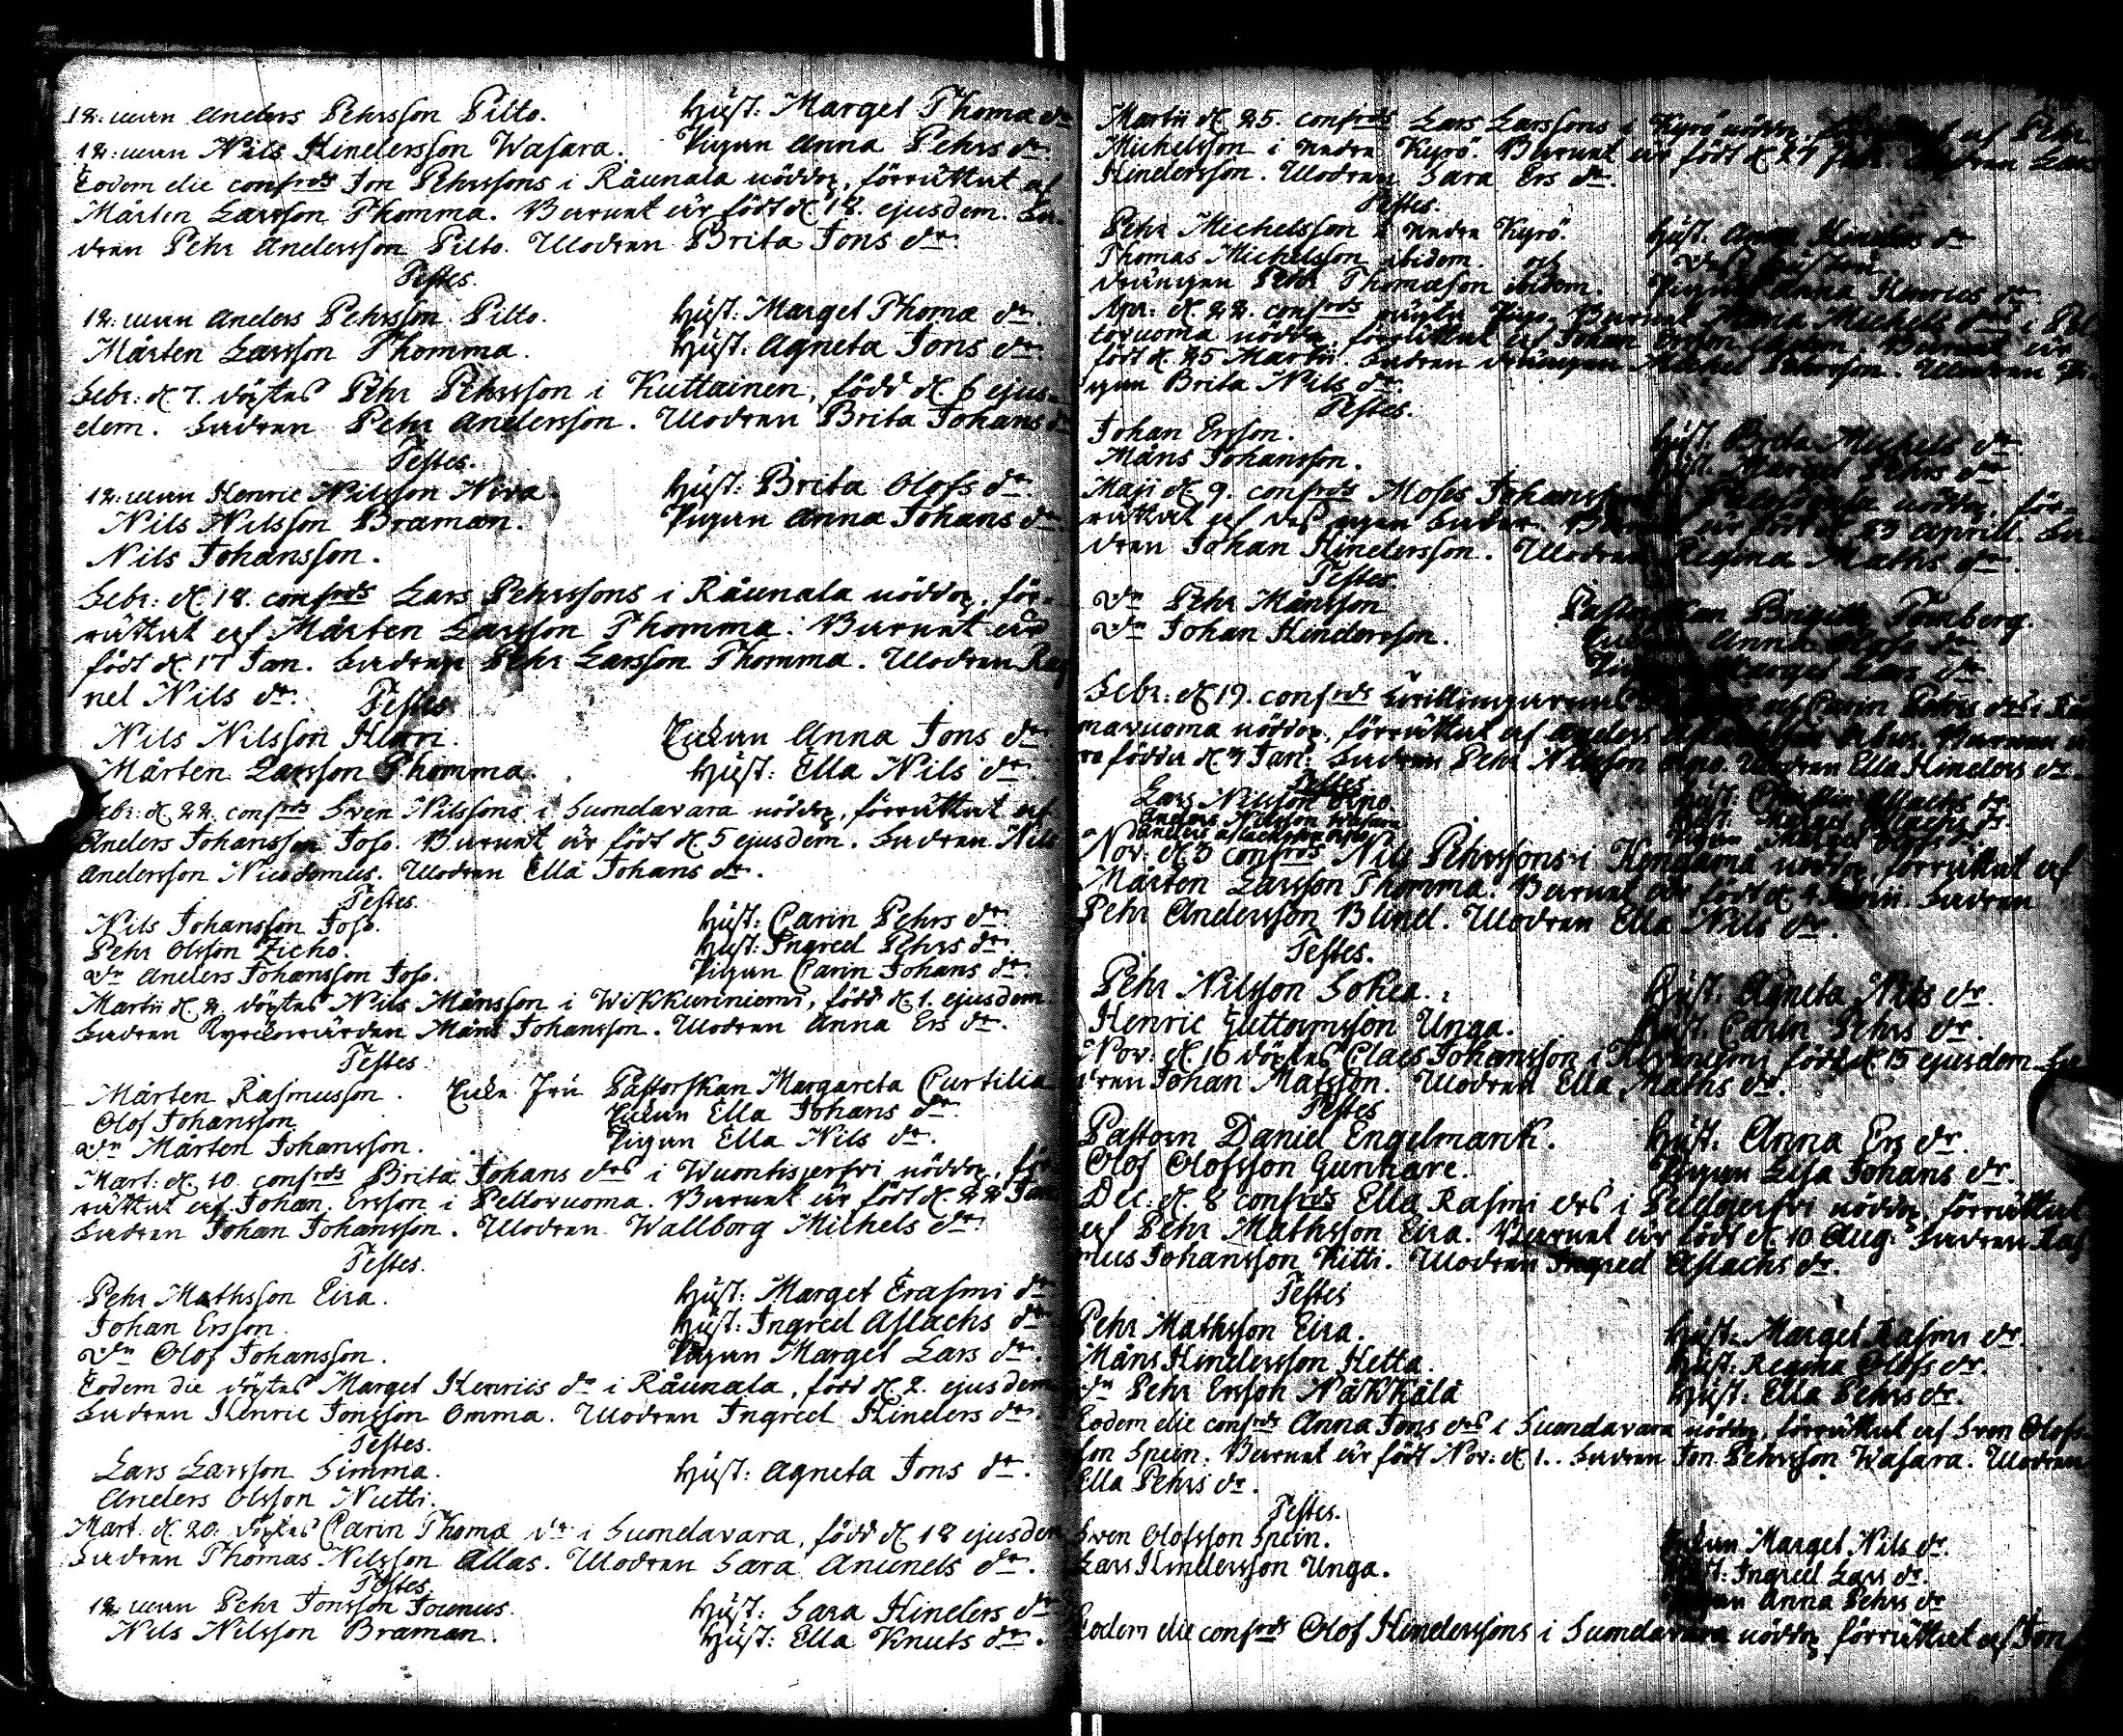 12. man Anders Pehrsson Pilto. Hust: Marget Thomæ dr
12: man Nils Hindersson Wasara. Pigan Anna Pehrs dr.
Eodem die confrds Jon Pehrssons i Råunala nöddop, förrättat af
Mårten Larsson Thomma. Barnet är födt d. 18. ejusdem. Fa-
dren Pehr Andersson Pilto. Modren Brita Jons dr.
Testes.
12: man Anders Pehrsson Pilto. Hust: Marget Thomæ dr.
Mårten Larsson Thomma. Hust. Agneta Jons dr.
Febr: d. 7. döptes Pehr Pehrsson i Kuttainen, född d. 6 ejus-
dem. Fadren Pehr Andersson. Modren Brita Johans dr
Testes.
12: man Henric Nilsson Niva Hust: Brita Olofs dr.
Nils Nilsson Braman. Pigan Anna Johans dr
Nils Johansson.
Febr: d. 18. confrds Lars Pehrssons i Råunala nöddop, för-
rättat af Mårten Larsson Thomma. Barnet är
födt d. 17 Jan. Fadren Pehr Larsson Thomma. Modren Rag
nel Nils dr. Testes
Nils Nilsson Hurri. Enkan Anna Jons dr
Mårten Larsson Thomma. Hust: Ella Nils dr.
Febr: d. 22. confrds Sven Nilssons i Suondavara nöddop, förrättat af
Anders Johansson Joso. Barnet är födt d. 5 ejusdem. Fadren Nils
Andersson Nicodemus. Modren Ella Johans dr.
Testes
Nils Johansson Joso. Hust: Carin Pehrs dr.
Pehr Olsson Zicho. Hust: Ingred Pehrs dr.
Dn Anders Johansson Joso. Pigan Carin Johans dr.
Martii d. 2. döptes Nils Månsson i Wikkuriniemi, född d. 1. ejusdem.
Fadren Kyrckowärden Måns Johansson. Modren Anna Ers dr.
Testes
Mårten Rasmusson. Enke Fru Pastorskan Margareta Curtilia
Olof Johansson. Enkan Ella Johans dr.
Dn Mårten Johansson. Pigan Ella Nils dr.
Mart: d. 10. confrds Brita Johans drs i Wuontisjerfvi nöddop, för
rättat af Johan Ersson i Pellovuoma. Barnet är födt d. 22 Jan
Fadren Johan Johansson. Modren Wallborg Michels dr.
Testes.
Pehr Mathsson Eira. Hust: Marget Erasmi dr
Johan Ersson. Hust: Ingred Aslachs dr
Dn Olof Johansson. Pigan Marget Lars dr.
Eodem die döptes Marget Henrics dr i Råunala, född d. 2. ejusdem
Fadren Henric Jonsson Omma. Modren Ingred Hinders dr.
Testes.
Lars Larsson Simma. Hust: Agneta Jons dr.
Anders Olsson Nutti.
Mart. d. 20. döptes Carin Thomæ dr i Suondavara, född d. 18 ejusdem
Fadren Thomas Nilsson Allas. Modren Sara Anunds dr.
Testes.
12 man Pehr Jonsson Jounus. Hust: Sara Hinders dr
Nils Nilsson Braman. Hust: Ella Knuts dr.
Martii d. 25. confrds Lars Larssons i Kyrö nöddop, af Pehr
Michelsson i nedra Kyrö. Barnet är födt d. 27 Lars
Hindersson. Modren Sara Ers dr.
Testes.
Pehr Michelsson i nedra Kyrö. Hust. Anna Hinders dr
Thomas Michelsson ibidem. och
drängen Pehr Thomæson ibidem. Pigan Anna Henrics dr.
Apr: d. 22. confrds Barnet Michels i Pel
lovuoma nöddop, förrättat af Johan Ersson ibidem. Barnet är
födt d. 25 Martii. Fadren drängen Michel Pehrsson. Modren Pi
gan Brita Nils dr.
Testes.
Johan Ersson. Hust. Brita Michels dr.
Måns Johansson. Hust. Marget Pehrs dr.
Maji d. 9. confrds Moses Johanssons nöddop, för-
rättat af des egen Fader. Barnet är födt d. 23 April. Fa-
dren Johan Hindersson. Modren Regina Maths dr.
Testes
Dn Pehr Månsson Pastorskan Brigitta Tornberg.
Dn Johan Hindersson. Enkan Anna Olofs dr.
Marget Lars dr.
Febr: d. 19. confrds tvillingarnas af Carin Pehrs drs i
mavuoma nöddop, förrättat af Anders
ro födda d. 3 Jan: Fadren Pehr Nilsson Modren Ella Hinders dr.
Testes
Lars Nilsson Hust: Christin Aslachs dr.
Anders Nilsson Wasara Hust. Marget Aslachs dr.
Nov: d. 3 confrds Nils Pehrssons i nöddop, förrättat af
Mårten Larsson Thomma. Barnet är födt d. 4 Fadren
Pehr Andersson Blind. Modren Ella Nils dr.
Testes.
Pehr Nilsson Sokea. Hust. Agneta Nils dr.
Henric Guttormsson Unga. Hust. Carin Pehrs dr.
Nov: d. 16 döptes Claes Johansson i född d. 15 ejusdem. Fa
dren Johan Matsson. Modren Ella Maths dr.
Testes
Pastorn Daniel Engelmark. Hust: Anna Ers dr.
Olof Olofsson Gunnare. Pigan Lisa Johans dr.
Dec: d. 8 confrds Ella Rasmi drs i nöddop, förrättat
af Pehr Mathsson Eira. Barnet är födt d. 10 Aug: Fadren Ras
mus Johansson Kitti. Modren Ingred Aslachs dr.
Testes
Pehr Mathsson Eira. Hust: Marget Rasmi dr.
Måns Hindersson Hetta. Hust: Regina Olofs dr.
Dn Pehr Ersson Näkkälä Hust: Ella Pehrs dr.
Eodem die confrds Anna Jons drs i Suondavara nöddop, förrättat af Sven Olofs-
son Spein. Barnet är födt Nov: d. 1. Fadren Jon Pehrsson Wasara. Modren
Ella Pehrs dr.
Testes.
Sven Olofsson Spein. Enkan Marget Nils dr.
Lars Hindersson Unga. Hust: Ingred Lars dr.
Pigan Anna Pehrs dr
Eodem die confrds Olof Hinderssons i Suondavara nöddop förrättat af Jon